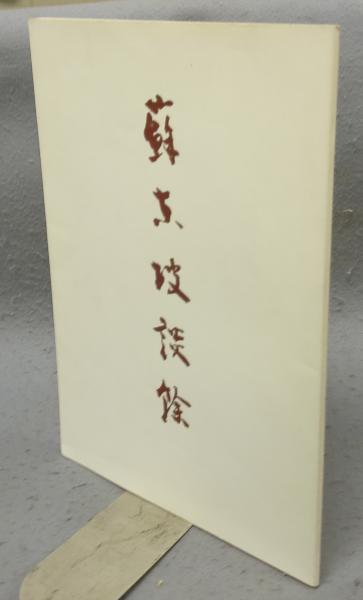 蘇東坡談餘